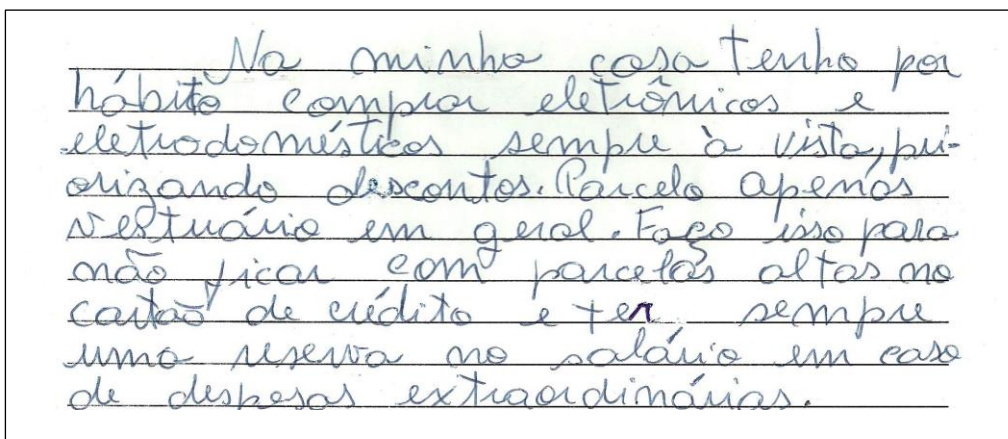 Na minha casa tenho por
hábito comprar eletrônicos e
eletrodomésticos sempre à vista, pri-
orizando descontos. Parcelo apenas
vestuário em geral. Faço isso para
não ficar com parcelas altas no
cartão de crédito e ter sempre
uma reserva no salário em caso
de despesas extraordinárias.